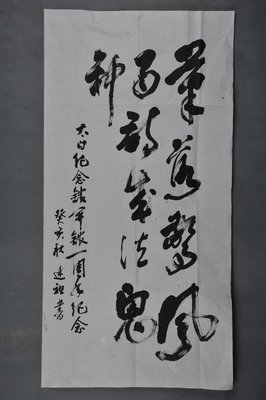 筆落驚風
雨詩成泣鬼
神
太白纪念館開館一周年纪念
癸亥秋 書